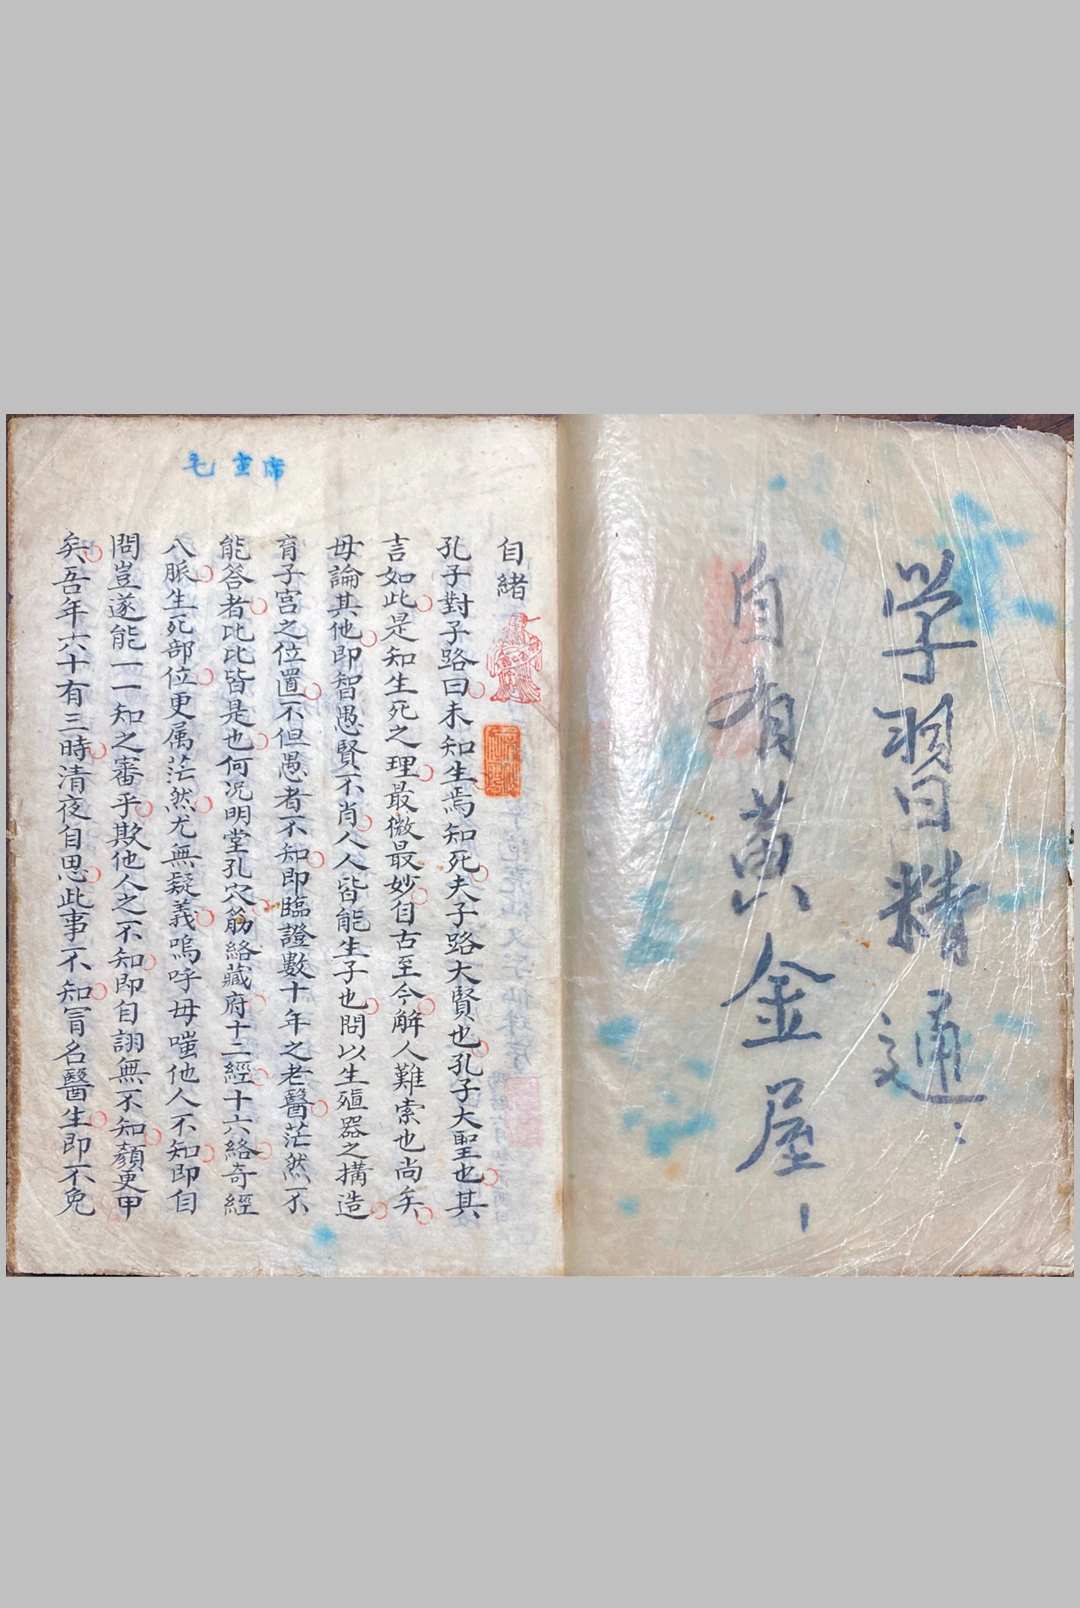 学習精通
自有黄金屋
毛主席
自緒
孔子對子路曰未知生焉知死夫子路大賢也孔子大聖也其
言如此是知生死之理最微最妙自古至今解人難索也尚矣
毋論其他即智愚賢不肖人人皆能生子也問以生殖器之搆造
育子宫之位置不但愚者不知即臨證數十年之老醫茫然不
能答者比比皆是也何况明堂孔穴筋絡藏府十二經十六絡奇經
八脈生死部位更属茫然尤無疑義嗚呼毋嗤他人不知即自
問豈遂能一一知之審乎欺他人之不知即自詡無不知顏更甲
矣吾年六十有三時清夜自思此事不知冒名醫生即不免